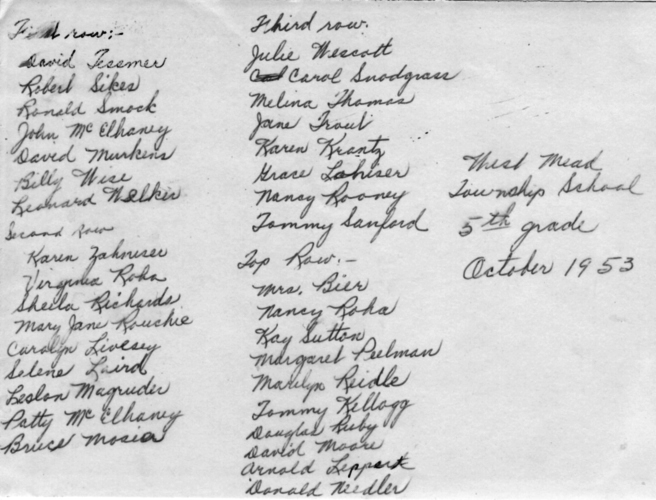 First row:-
David Tessmer
Robert Sikes
Ronald Smock
John McElhaney
David Murkens
Billy Wise
Leonard Walker
Second Row
Karen Zahniser
Virginia Roha
Sheila Richards
Mary Jane Rouchie
Carolyn Livesey
Selene Laird
Leslon Magruder
Patty McElhaney
Bruce Mosia
Third row.
Julie Wescott
Carol Snodgrass
Melina Thomas
Jane Trout
Karen Krantz
Grace Lahiser
Nancy Rooney
Tommy Sanford
Top Row.-
Mrs. Bier
Nancy Roha
Kay Sutton
Margaret Peelman
Marilyn Reidle
Tommy Kellogg
Douglas Ruby
David Moore
Arnold Leppert
Donald Needler
West Mead
Township School
5th grade
October 1953